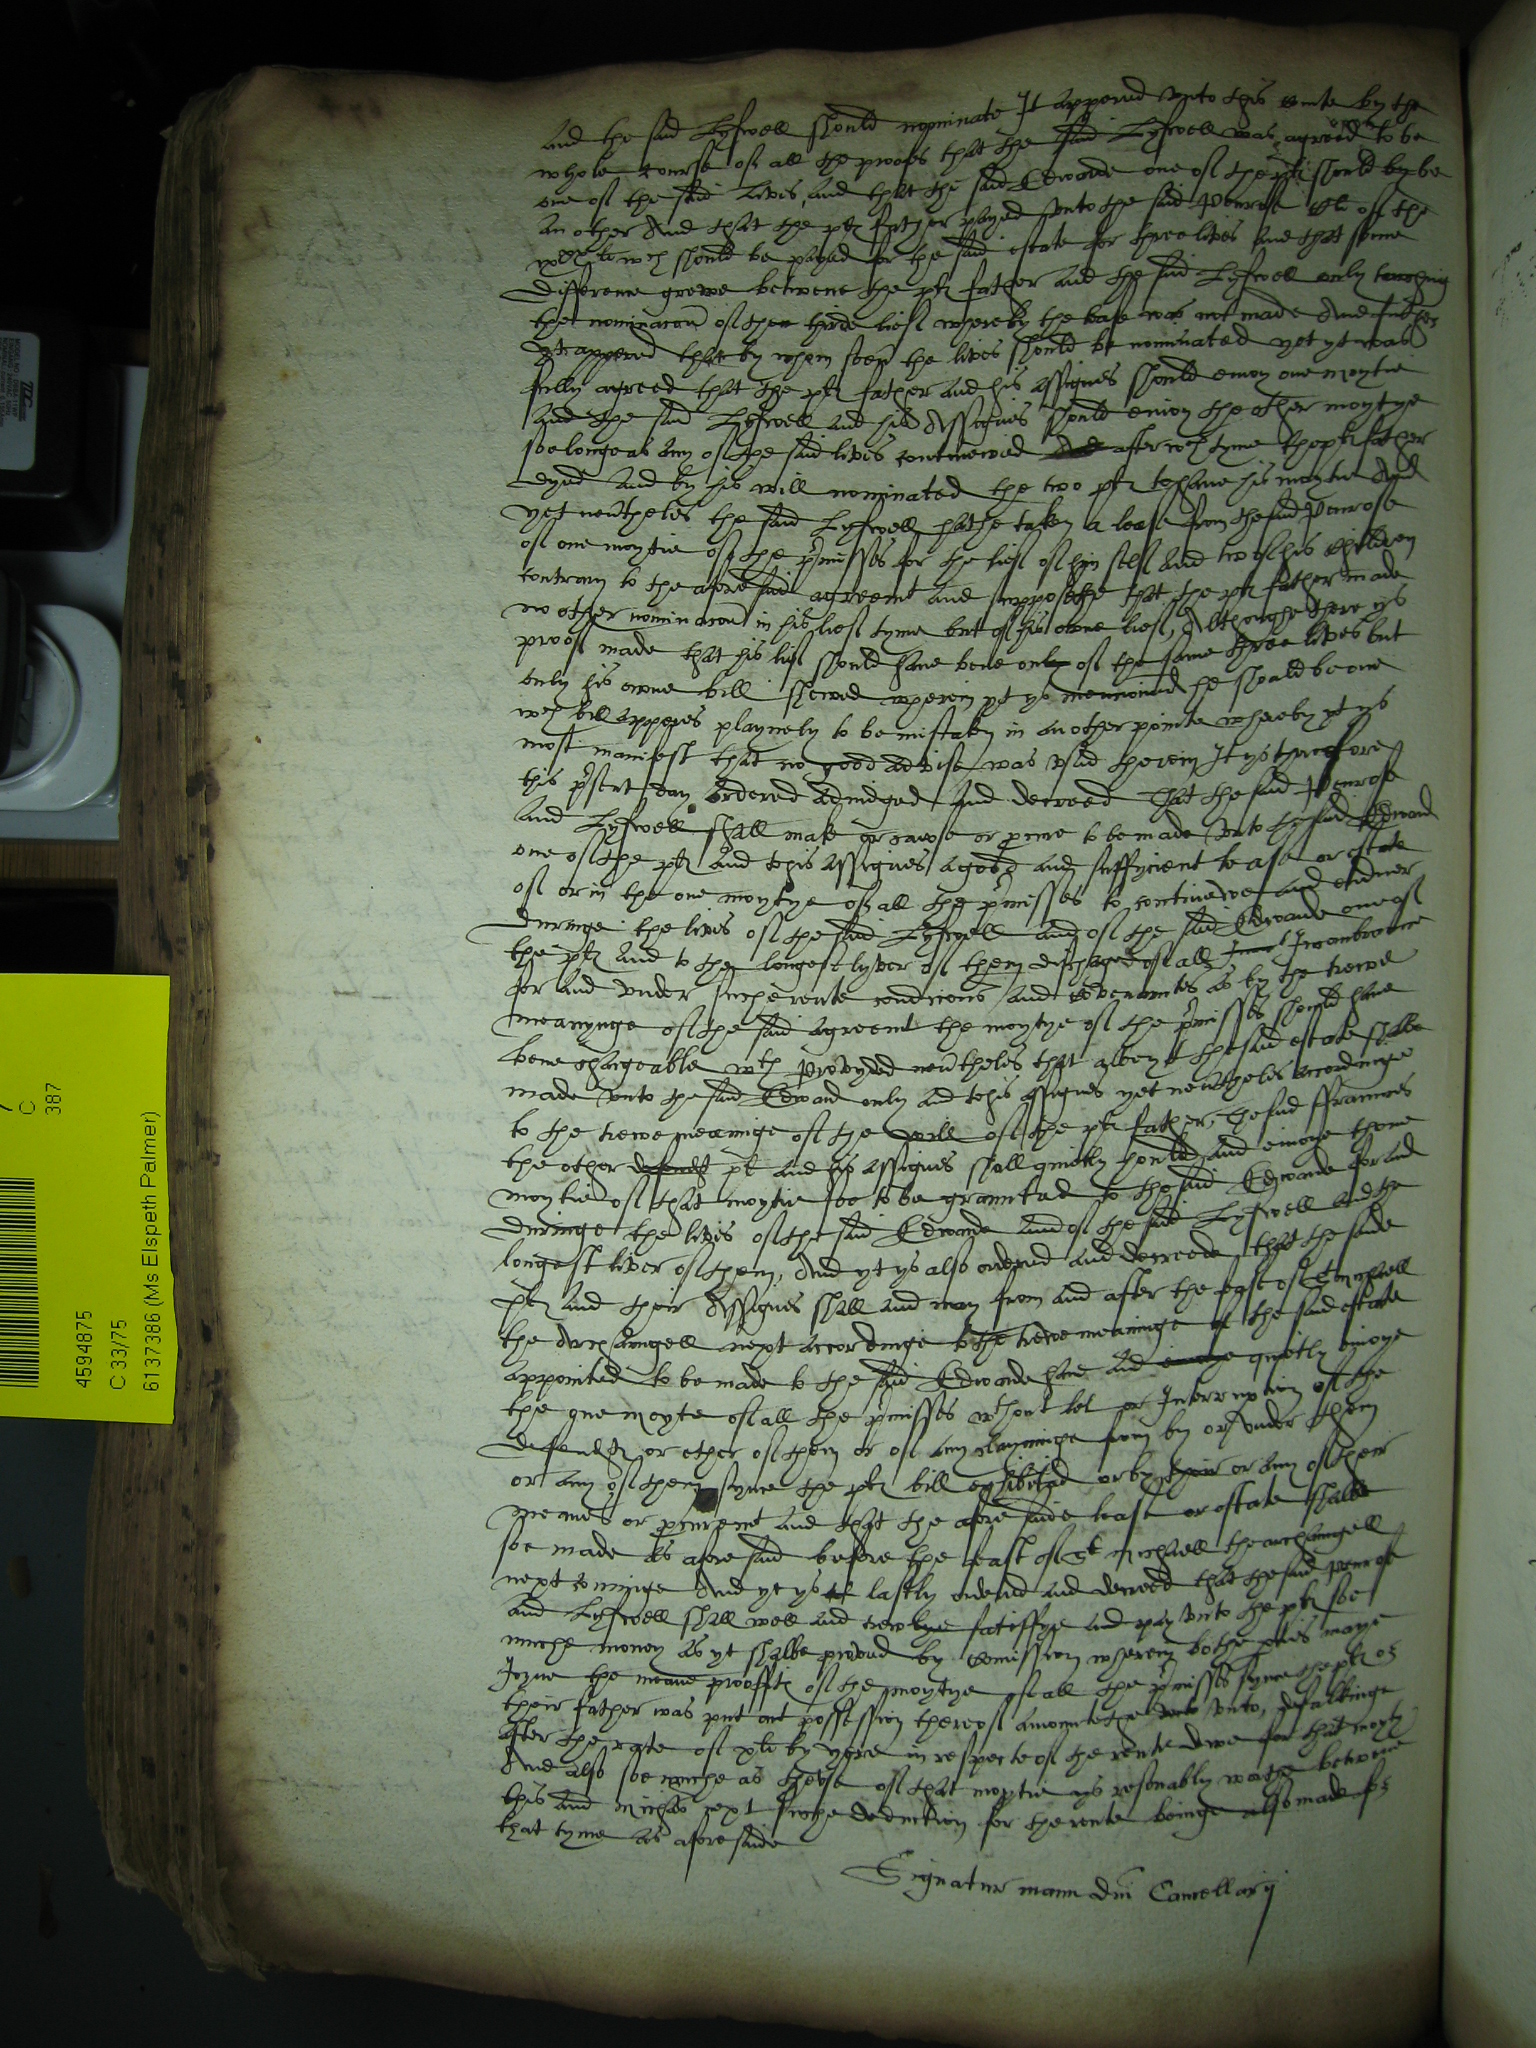 and the said Lyfwell should nominate It appered unto this courte by the
whole course of all the proofes that the said Lyfwell was agreed to be
one of the said lives, and that the said Edwarde one of the pltes should by be
an other And that the pltes father payed unto the said Penrose of the
wch should be payed for the said estate for three lives and that some
difference growe betwene the pltes father and the said Lyfwell only touching
the nominacon of the thirde lief whereby the lease was not made And further
yt appered that by whom soever the lives should be nominated yet yt was
fully agreed that the pltes father and his assignes should enioy one moytie
and the said Lyfwell and his Assignes should enioy the other moytye
soe longe as any of the said lives contineued and after wch tyme the pltes father
dyed and by his will nominated the two pltes to have his moytie And
yet nevertheles the said Lyfwell hathe taken a lease from the said Penrose
of one moytie of the p'misses for the lief of him self and two of his children
contrary to the aforesaid agreemt and supposethe that the pltes father made
no other nominacon in his lief tyme but of his owne lief, Althoughe there ys
proof made that his lief should have bene only of the same three lives but
only his owne bill shewed wherein yt ys mencioned he should be one
wch bill apperes playnely to be mistaken in another pointe whereby yt ys
most manifest that no good advise was used therein It ys therefore
this p'sent day ordered adiudged and decreed That the said Penrose
and Lyfwell shall make or cawse or p'cure to be made unto the said Edward
one of the pltes and to his assignes a good and suffycient lease or estate
of or in the one moytye of all the p'misses to contineue and endure
duringe the lives of the said Lyfwell and of the said Edwarde one of
the pltes and to the longest lyver of them discharged of all Incombraunce
for and under suche rente condicons and covenauntes as by the trewe
meanynge of the said agreemt the moytye of the p'misses should have
bene chargeable wth Provyded nevertheles that albeyt the said estate shalbe
made unto the said Edward only and to his assignes yet nevertheles accordinge
to the trewe meaninge of the will of the pltes father, The said Fraunces
the other defendt plt and his assignes shall quietly hould and enioye thone
moytie of that moytie soe to be graunted to the said Edwarde for and
duringe the lives of the said Edwarde and of the said Lyfwell and the
longest liver of them, And yt ys also ordered and decreede that the saide
pltes and their Assignes shall and may from and after the feast of St Michaell
the Archangell next accordinge to the trewe meaninge of the said estate
appointed to be made to the said Edwarde have and enioye quietly enioye
the one moyte of all the p'misses wthout let or Interruption of the
defendtes or ether of them or of any clayminge from by or under them
or any of them synce the pltes bill exhibited or by their or any of their
meanes or p'curemt and that the afore saide lease or estate shalbe
soe made as afore said before the feast of St Michaell the archangell
next cominge And yt ys lastly ordered and decreed that the said Penrose
and Lyfwell shall well and trewlye satisffye and pay unto the pltes soe
muche money as yt shalbe proved by comission wherein bothe p'ties maye
Joyne the meane proffittes of the moytye of all the p'misses synce the pltes or
their father was put out possession thereof amountethe unto, defalkinge
after the rate of xli by yere in respecte of the rente dwe for that moyty
And also soe muche as thuse of that moytie ys resonably worthe betwene
this and Michas next suche deduction for the rente beinge also made for
that tyme as afore saide
Signatur manu dni Cancellarij
4594875
C 33/75
6137386 (Ms Elspeth Palmer)
C
387